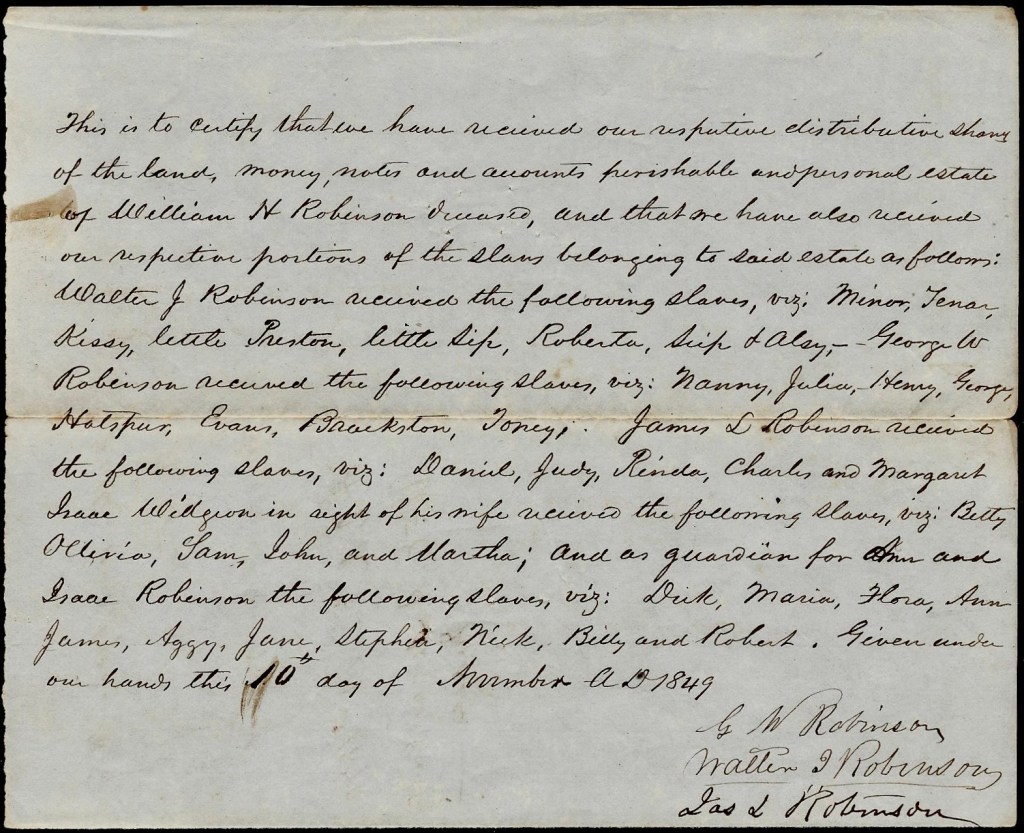 This is to certify that we have recieved our respective distributive share
of the land, money, notes and accounts perishable and personal estate
of William H Robinson deceased, and that we have also recieved
our respective portions of the slaves belonging to said estate as follows:
Walter J Robinson recieved the following slaves, viz: Minor, Tenar,
Kissy, little Preston, little Sip, Roberta, Sip & Alsy, — George W
Robinson recieved the following slaves, viz: Nanny, Julia, Henry, George,
Hotspur, Evans, Brackston, Toney; James L Robinson recieved
the following slaves, viz: Daniel, Judy, Rinda, Charles and Margaret
Isaac Widgeon in right of his wife recieved the following slaves, viz: Betty
Ollivia, Sam, John, and Martha; and as guardian for Ann and
Isaac Robinson the following slaves, viz: Dick, Maria, Flora, Ann
James, Aggy, Jane, Stephen, Nick, Billy and Robert. Given under
our hands this 10th day of November AD 1849
G W Robinson
Walter J Robinson
Jas L Robinson